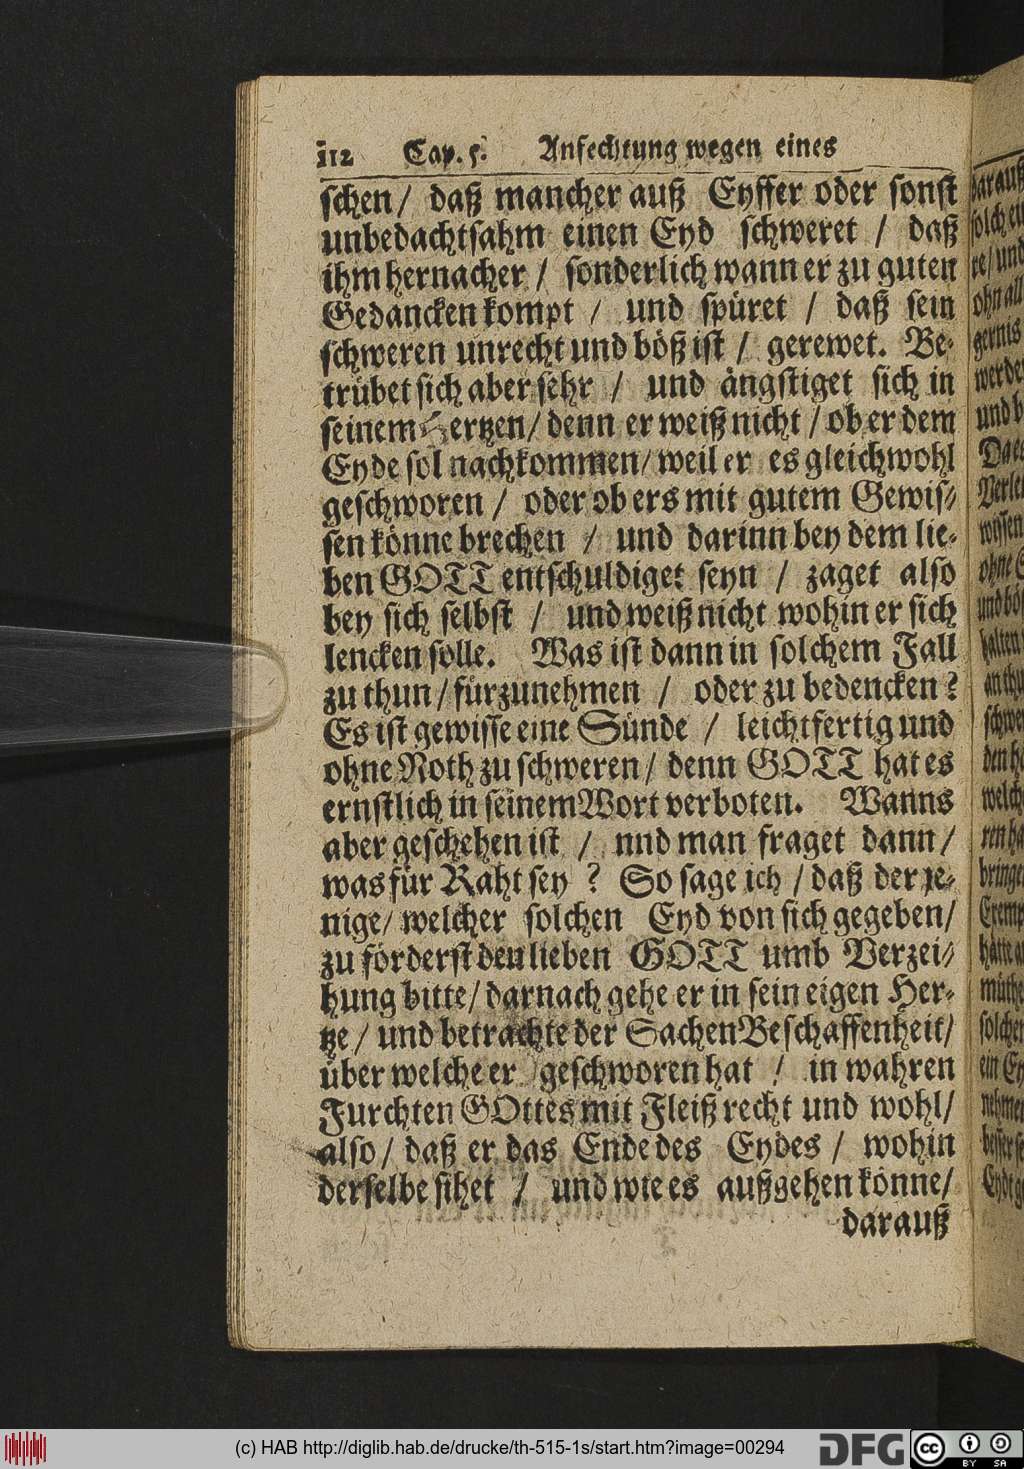 112 Cap. 5. Anfechtung wegen eines
schen / daß mancher auß Eyffer oder sonst
unbedachtsahm einen Eyd schweret / daß
ihm hernacher / sonderlich wann er zu guten
Gedancken kompt / und spüret / daß sein
schweren unrecht und böß ist / gerewet. Be-
trübet sich aber sehr / und ängstiget sich in
seinem Hertzen / denn er weiß nicht / ob er dem
Eyde sol nachkommen / weil er es gleichwohl
geschworen / oder ob ers mit gutem Gewis-
sen könne brechen / und darinn bey dem lie-
ben GOTT entschuldiget seyn / zaget also
bey sich selbst / und weiß nicht wohin er sich
lencken solle. Was ist dann in solchem Fall
zu thun / fürzunehmen / oder zu bedencken?
Es ist gewisse eine Sünde / leichtfertig und
ohne Noth zu schweren / denn GOTT hat es
ernstlich in seinem Wort verboten. Wanns
aber geschehen ist / nnd man fraget dann /
was für Raht sey? So sage ich / daß der je-
nige / welcher solchen Eyd von sich gegeben /
zu förderst den lieben GOTT umb Verzei-
hung bitte / darnach gehe er in sein eigen Her-
tze / und betrachte der Sachen Beschaffenheit /
über welche er geschworen hat / in wahren
Furchten GOttes mit Fleiß recht und wohl /
also / daß er das Ende des Eydes / wohin
derselbe sihet / und wie es außgehen könne /
darauß
darauß
solch
re / und
ohn all
und b
(c) HAB http://diglib.hab.de/drucke/th-515-1s/start.htm?image=00294
DFG
cc BY SA